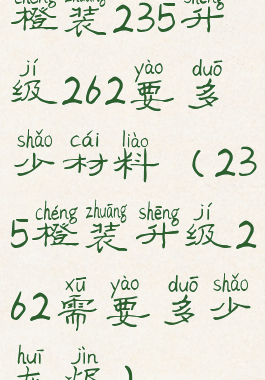 chéng zhuāng shēng
橙装235升
jí yào duō
级262要多
shǎo cái liào
少材料（23
chéng zhuāng shēng jí
5橙装升级2
xū yào duō shǎo
62需要多少
huī jìn
灰烬）